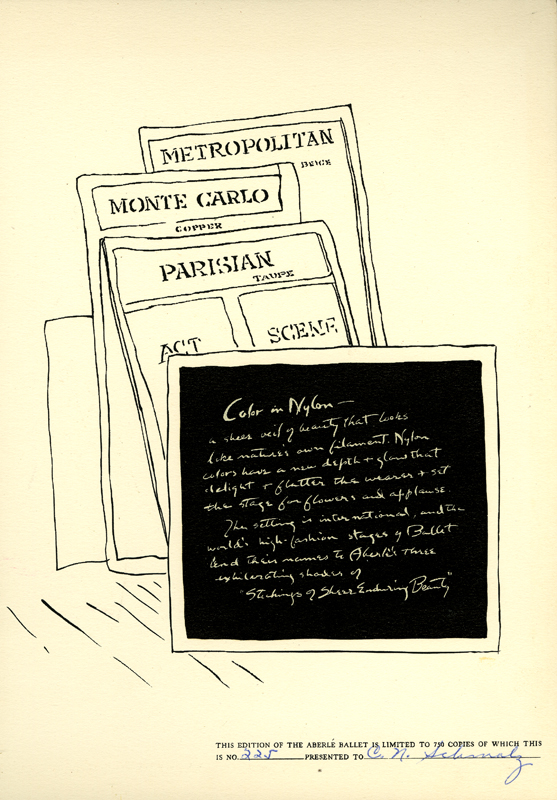 METROPOLITAN
BEIGE
MONTE CARLO
COPPER
PARISIAN
TAUPE
ACT
SCENE
Color in Nylon—
a sheer veil of beauty that looks
like nature's own filament. Nylon
colors have a new depth + glow that
delight + flatter the wearer + set
the stage for flowers and applause.
The setting is international, and the
world's high-fashion stages of Ballet
lend their names to Aberle's three
exhilerating shades of
"Stockings of Sheer Enduring Beauty"
THIS EDITION OF THE ABERLE BALLET IS LIMITED TO 750 COPIES OF WHICH THIS
IS NO. 225 PRESENTED TO C. N. Schmalz